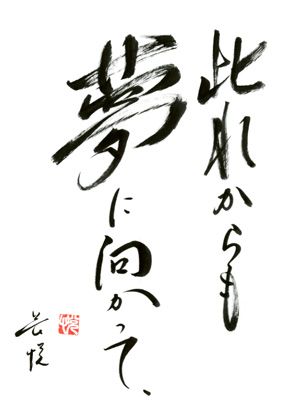 此れからも
夢に向かって、